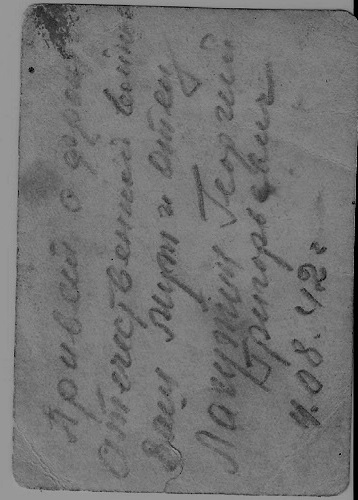 Привет с фрон
отечественной войны
Ваш муж и отец
Лагутин Георгий
Григорьевич
4.08.42г